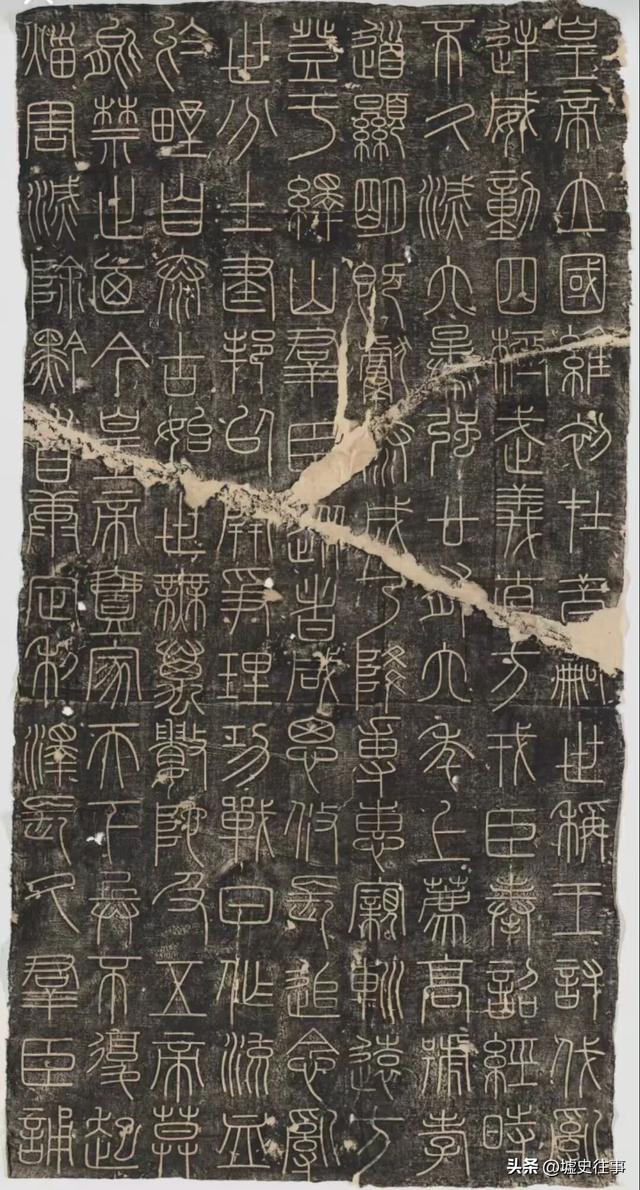 皇帝立國維初在昔嗣世稱王討伐亂
逆威動四極武義直方戎臣奉詔經時
不久滅六暴強廿有六年上薦高號孝
道顯明既獻泰成乃降專惠親巡遠方
登于繹山群臣從者咸思攸長追念亂
世分土建邦以開爭理功戰日作流血
於野自泰古始世無萬數陀及五帝莫
能禁止迺今皇帝壹家天下兵不復起
災害滅除黔首康定利澤長久群臣誦
头条 @墟史往事